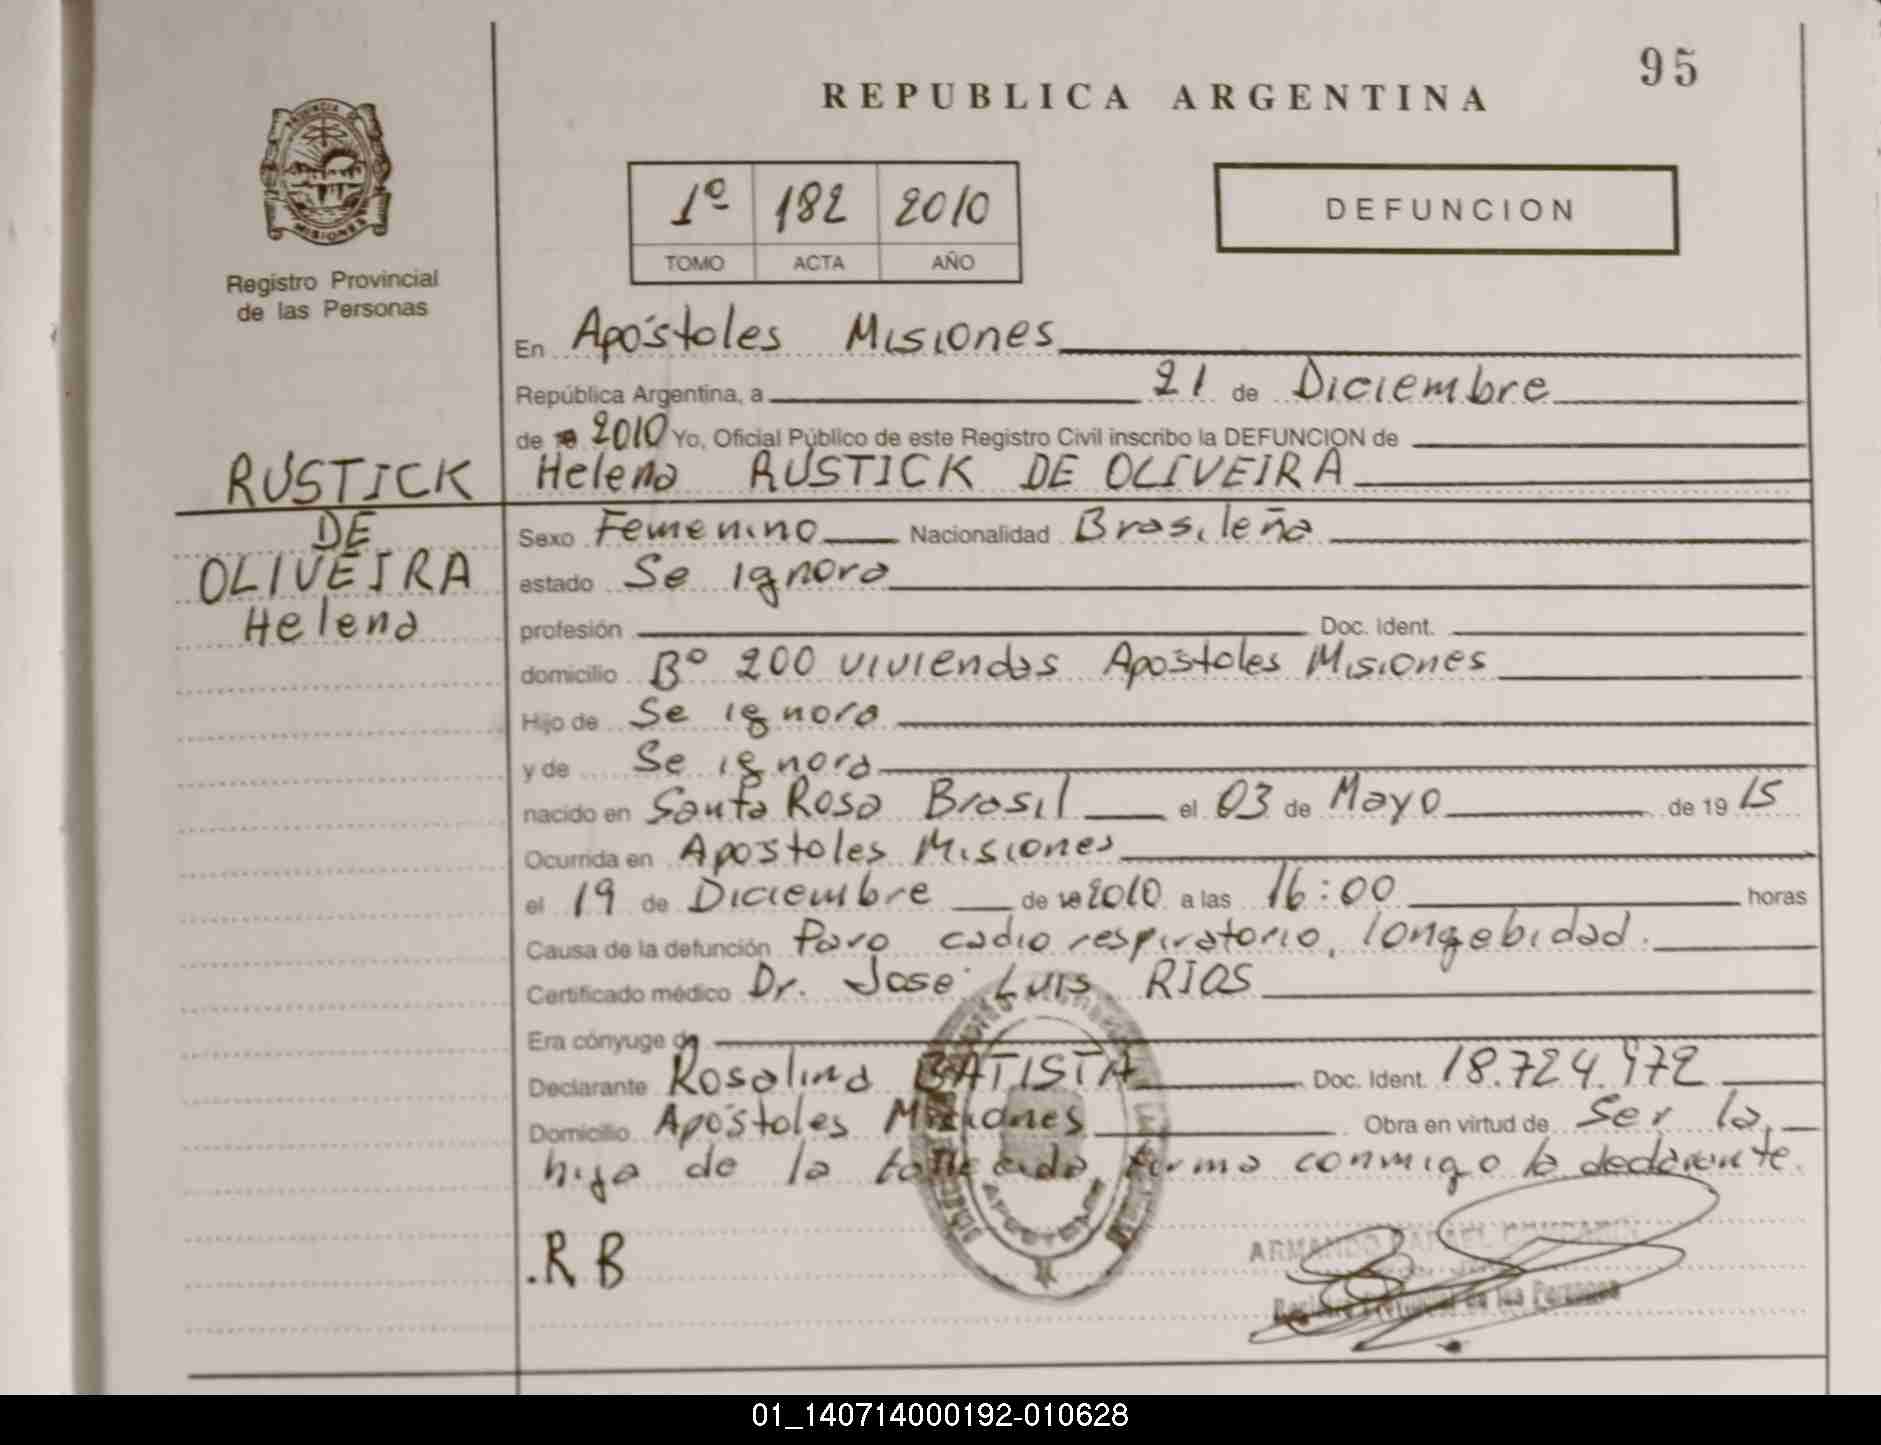 95
REPUBLICA ARGENTINA
PROVINCIA DE
MISIONES
Registro Provincial
de las Personas
1º 182 2010
TOMO ACTA AÑO
DEFUNCION
En Apóstoles Misiones
República Argentina, a 21 de Diciembre
de 2010 Yo, Oficial Público de este Registro Civil inscribo la DEFUNCION de
Helena RUSTICK DE OLIVEIRA
RUSTICK
DE
OLIVEIRA
Helena
Sexo Femenino Nacionalidad Brasileña
estado Se ignora
profesión Doc. Ident.
domicilio Bº 200 viviendas Apóstoles Misiones
Hijo de Se ignora
y de Se ignora
nacido en Santa Rosa Brasil el 03 de Mayo de 1915
Ocurrida en Apóstoles Misiones
el 19 de Diciembre de 2010 a las 16:00 horas
Causa de la defunción Paro cadio respiratorio, longebidad.
Certificado médico Dr. José Luis RIOS
Era cónyuge de
Declarante Rosalina BATISTA Doc. Ident. 18.724.972
Domicilio Apóstoles Misiones Obra en virtud de Ser la
hija de la fallecida, firma conmigo la declarante.
APOSTOLES
.RB
ARMANDO RAFAEL
Registro Provincial de las Personas
01_140714000192-010628